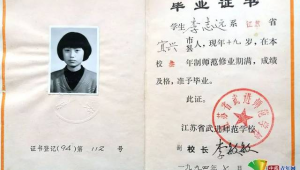 毕业证书
学生 李志远 系 江苏 省
宜兴 市县 人，现年十九岁，在本
校 叁 年制师范修业期满，成绩
及格，准予毕业。
此证。
江苏省武进师范学校
副校长
一九九四年七
证书登记(94)第 112 号